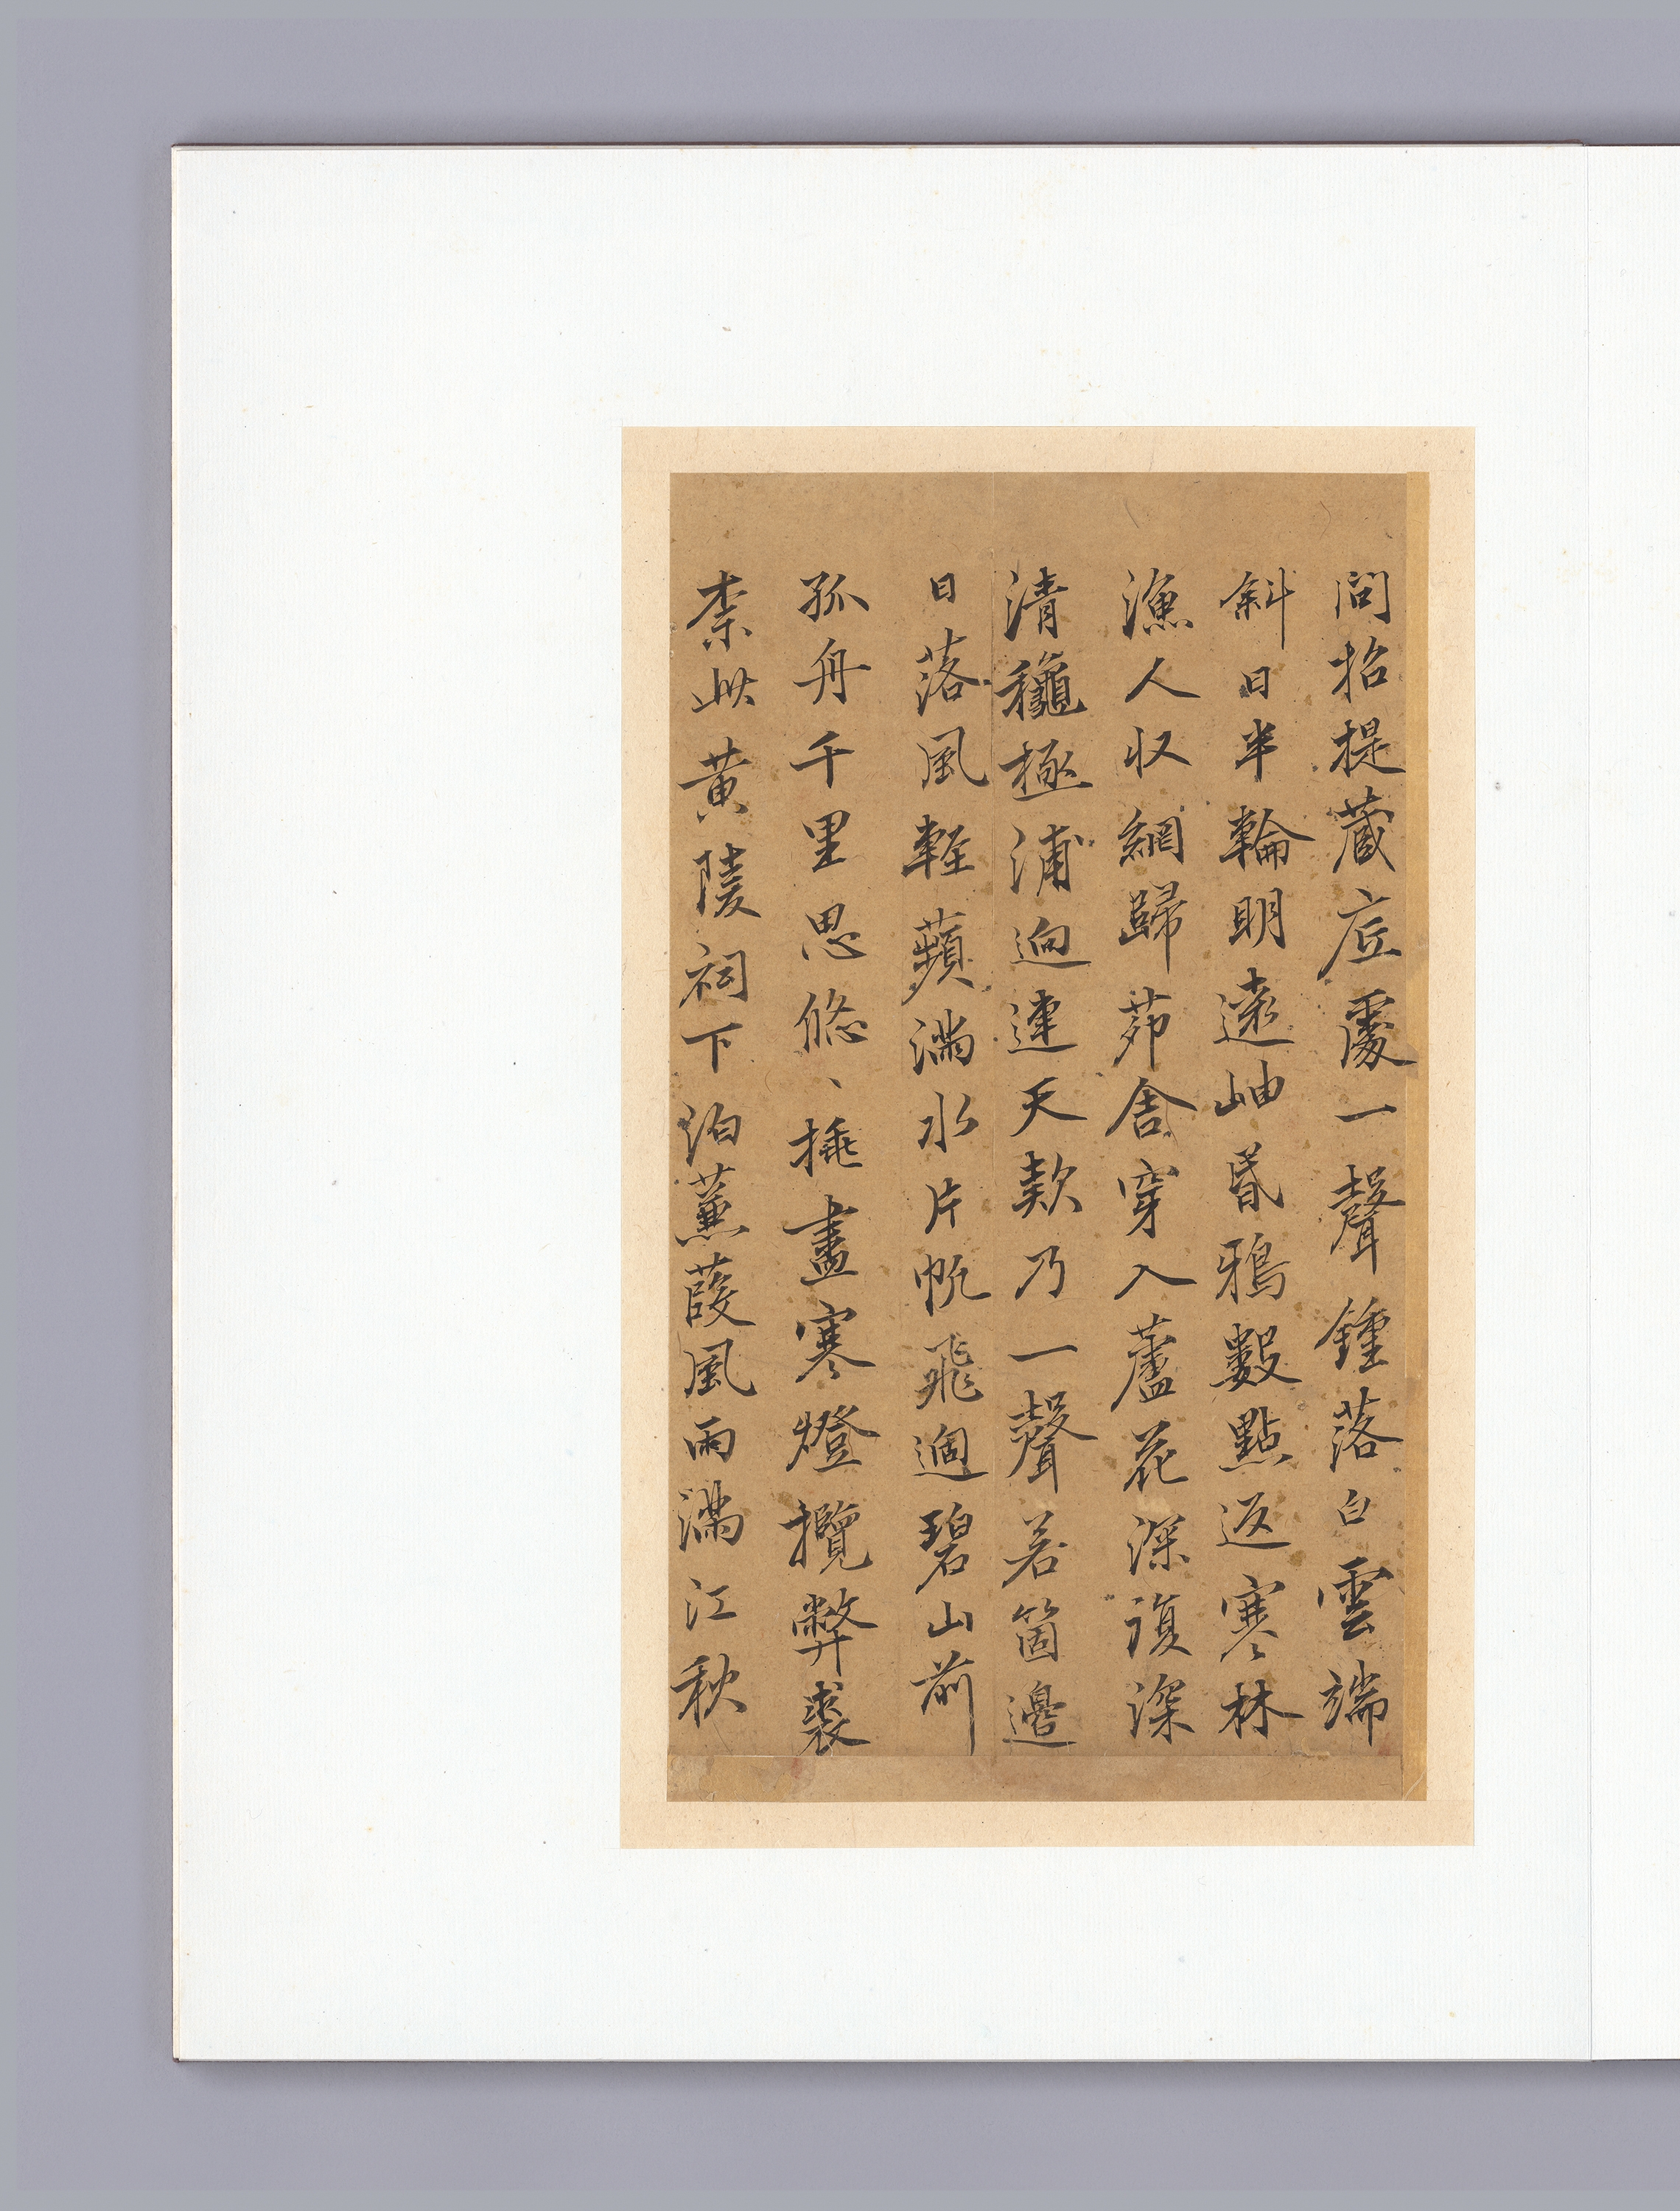 問招提藏㢀處一聲鍾落白雲端
斜日半輪明遠岫昏鴉數點返寒林
漁人収網歸茆舍穿入蘆花深復深
清龝極浦逈連天欵乃一聲若箇邊
日落風軽蘋滿水片帆飛過碧山前
孤舟千里思悠、挑盡寒燈攬弊裘
柰此黃陵祠下泊蒹葭風雨滿江秋